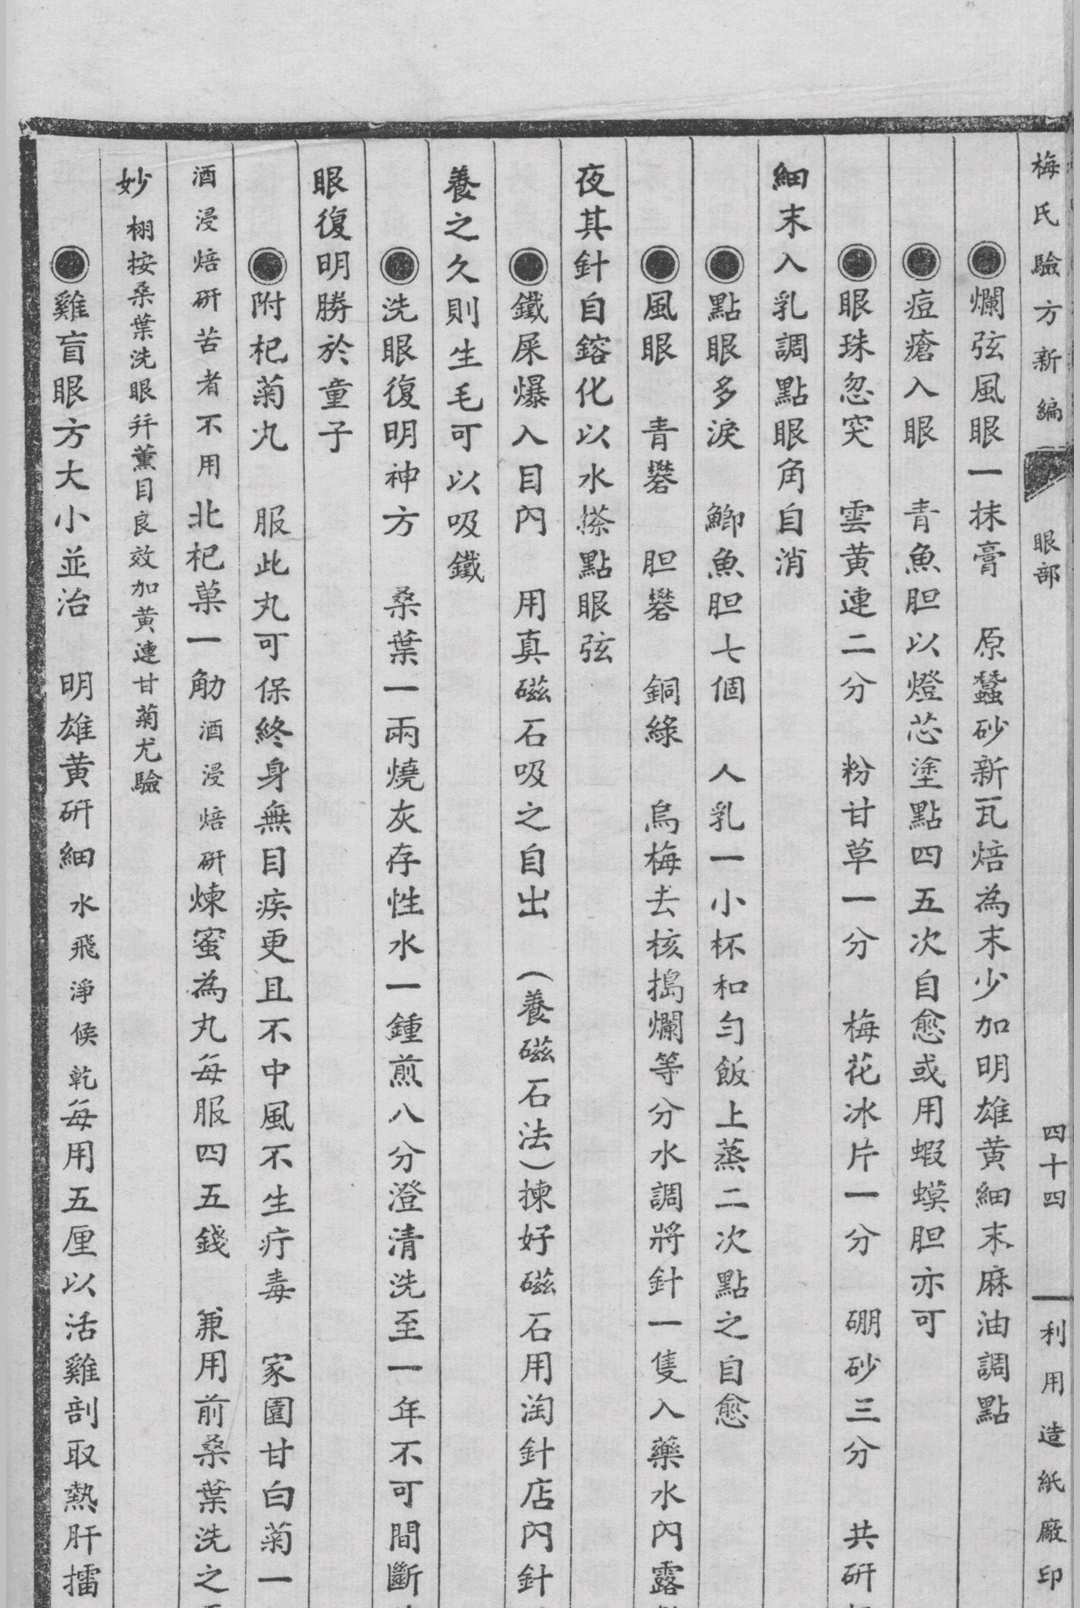 梅氏驗方新編 眼部 四十四 利用造紙廠印
◉爛弦風眼一抹膏 原蠶砂新瓦焙為末少加明雄黃細末麻油調點
◉痘瘡入眼 青魚胆以燈芯塗點四五次自愈或用蝦蟆胆亦可
◉眼珠忽突 雲黃連二分 粉甘草一分 梅花冰片一分 硼砂三分 共研
細末入乳調點眼角自消
◉點眼多淚 鯽魚胆七個 人乳一小杯和勻飯上蒸二次點之自愈
◉風眼 青礬 胆礬 銅綠 烏梅去核搗爛等分水調將針一隻入藥水內露
夜其針自鎔化以水搽點眼弦
◉鐵屎爆入目內 用真磁石吸之自出 (養磁石法)揀好磁石用淘針店內針
養之久則生毛可以吸鐵
◉洗眼復明神方 桑葉一兩燒灰存性水一鍾煎八分澄清洗至一年不可間斷
眼復明勝於童子
◉附杞菊丸 服此丸可保終身無目疾更且不中風不生疔毒 家園甘白菊一
酒浸焙研苦者不用北杞菓一觔酒浸焙研煉蜜為丸每服四五錢 兼用前桑葉洗之
妙 栩按桑葉洗眼并薰目良效加黃連甘菊尤驗
◉雞盲眼方大小並治 明雄黃研細水飛淨候乾每用五厘以活雞剖取熱肝擂